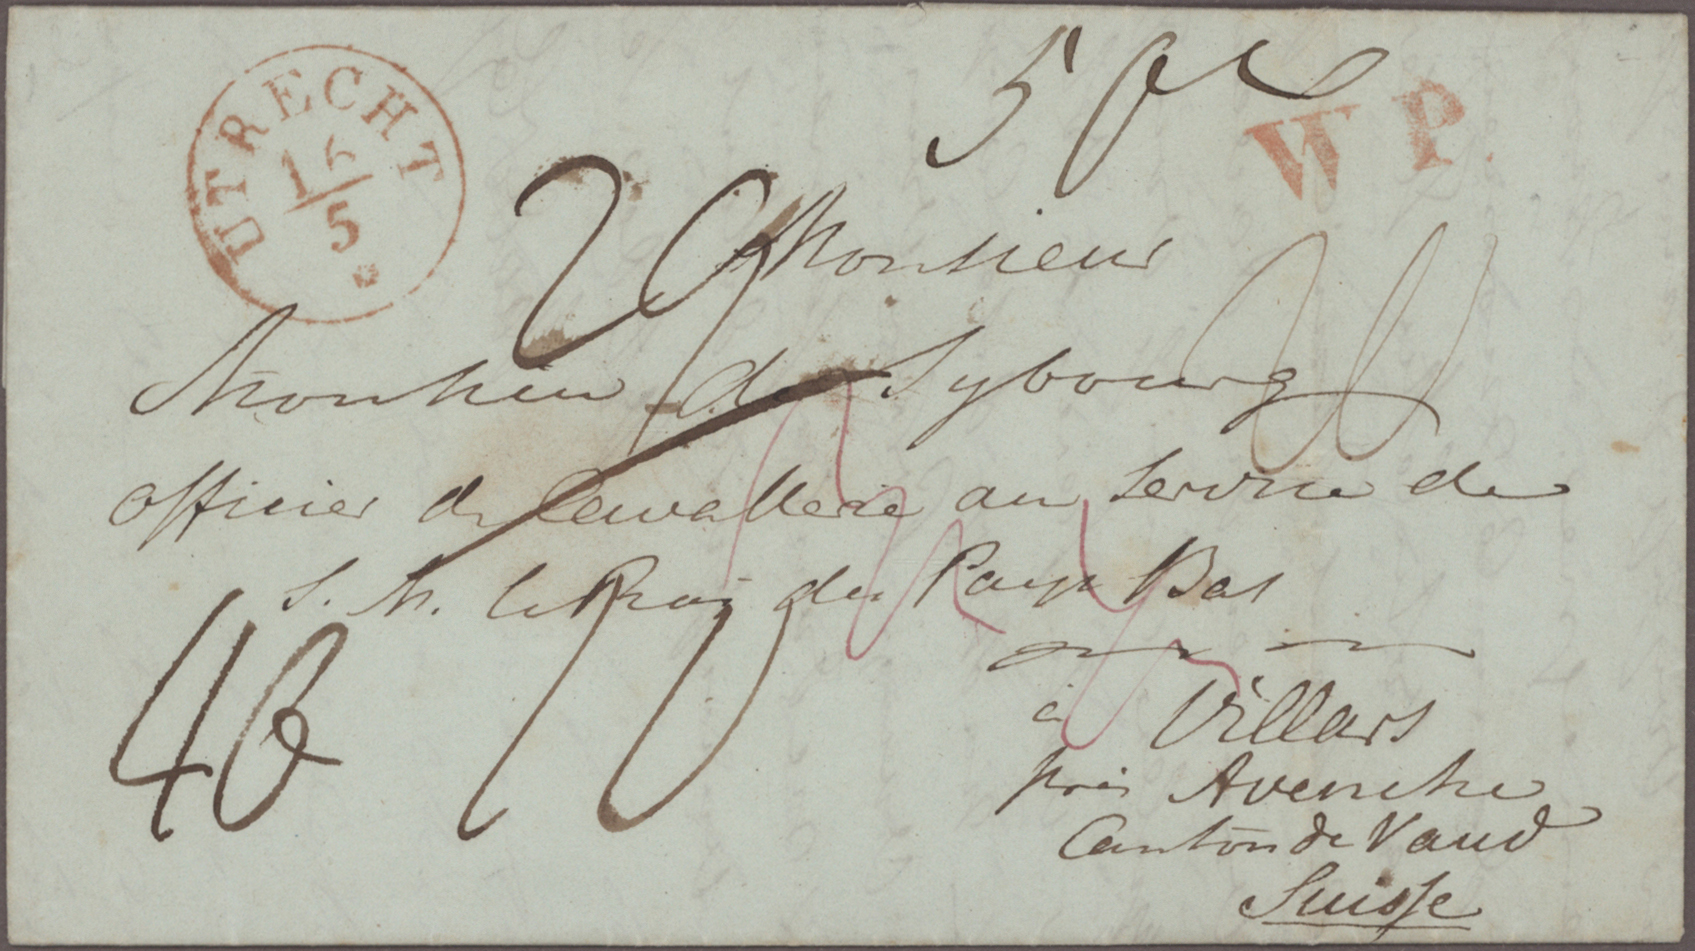 UTRECHT
16
5
W P.
Monsieur
Monsieur de Sybourg
officier de Cavallerie au Service de
S. M. le Roi des Pays Bas
à Villars
près Avenche
Canton de Vaud
Suisse
46